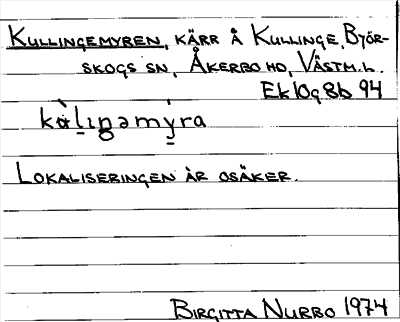 KULLINGEMYREN, KÄRR Å KULLINGE, BJÖR-
SKOGS SN, ÅKERBO HD, VÄSTM.L.
Ek 10g 8b 94
kὰlıŋəmýra
LOKALISERINGEN ÄR OSÄKER.
BIRGITTA NURBO 1974